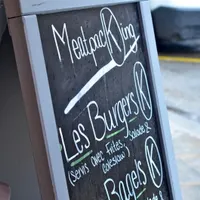 Meatpacking
Les Burgers
(Servis avec Frites, Salade &
Coleslaw)
Bagels